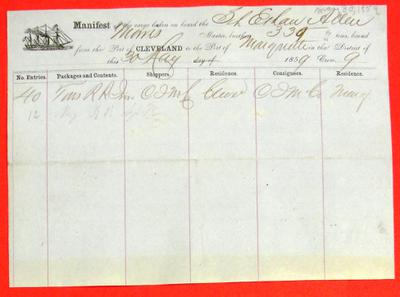 May 30, 1859
Manifest of the cargo taken on board the Sh Ethan Allen
Morris Master, burthen 330 tons, bound
from the Port of CLEVELAND to the Port of Marquette in the District of
this 30 May day of 1859 Crew, 9
No. Entries. Packages and Contents. Shippers. Residence. Consignees. Residence.
40 Tons R R Iron C I M Co Cleved C I M Co Marq
12